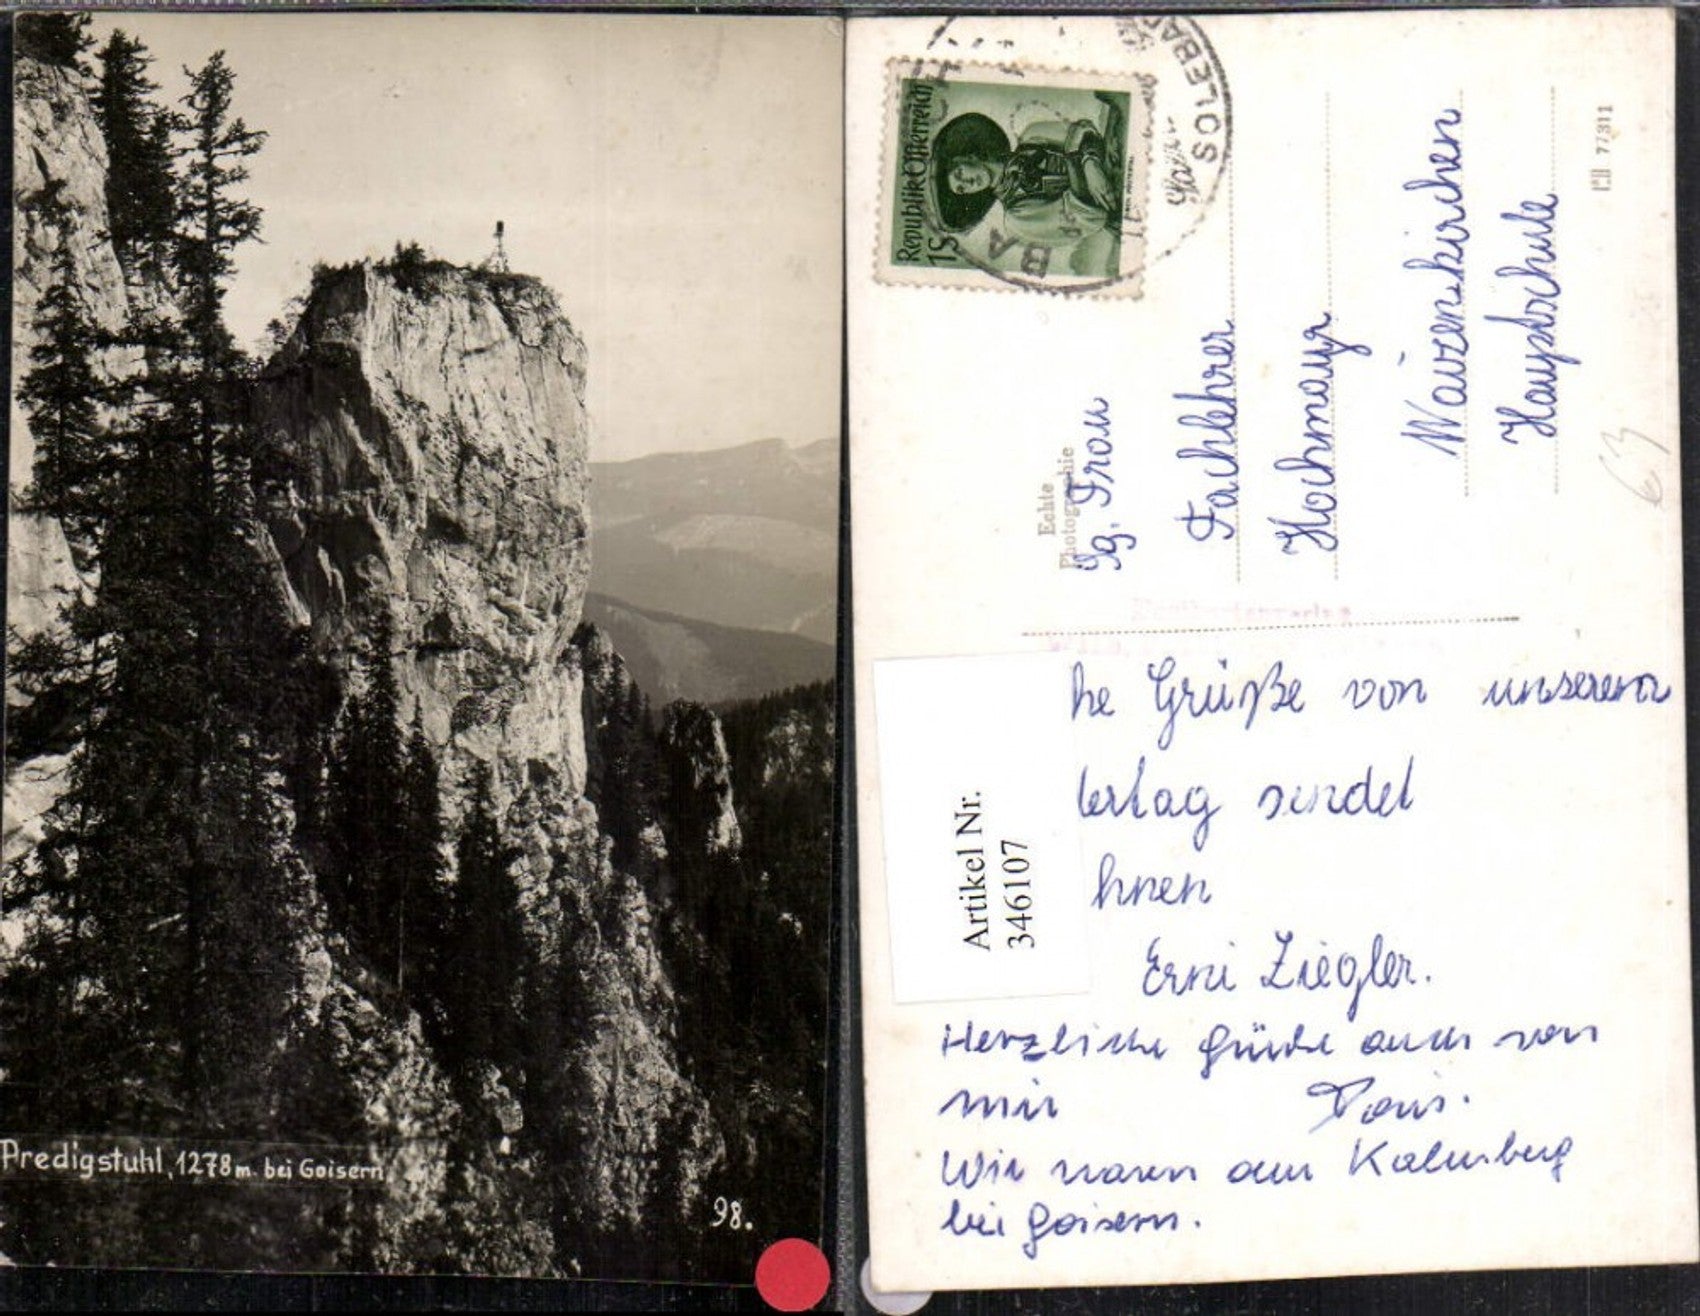 Predigstuhl, 1278m. bei Goisern
98.
Republik Österreich
1S
SOLEBAD
BA
Echte
Photographie
Frau
Fachlehrer
Hochmayr
Waizenkirchen
Hauptschule
77311
63
he Grüße von unserem
sendet
hnen
Erni Ziegler.
Herzliche Grüße auch von
mir
Wir waren am
bei Goisern.
Artikel Nr.
346107